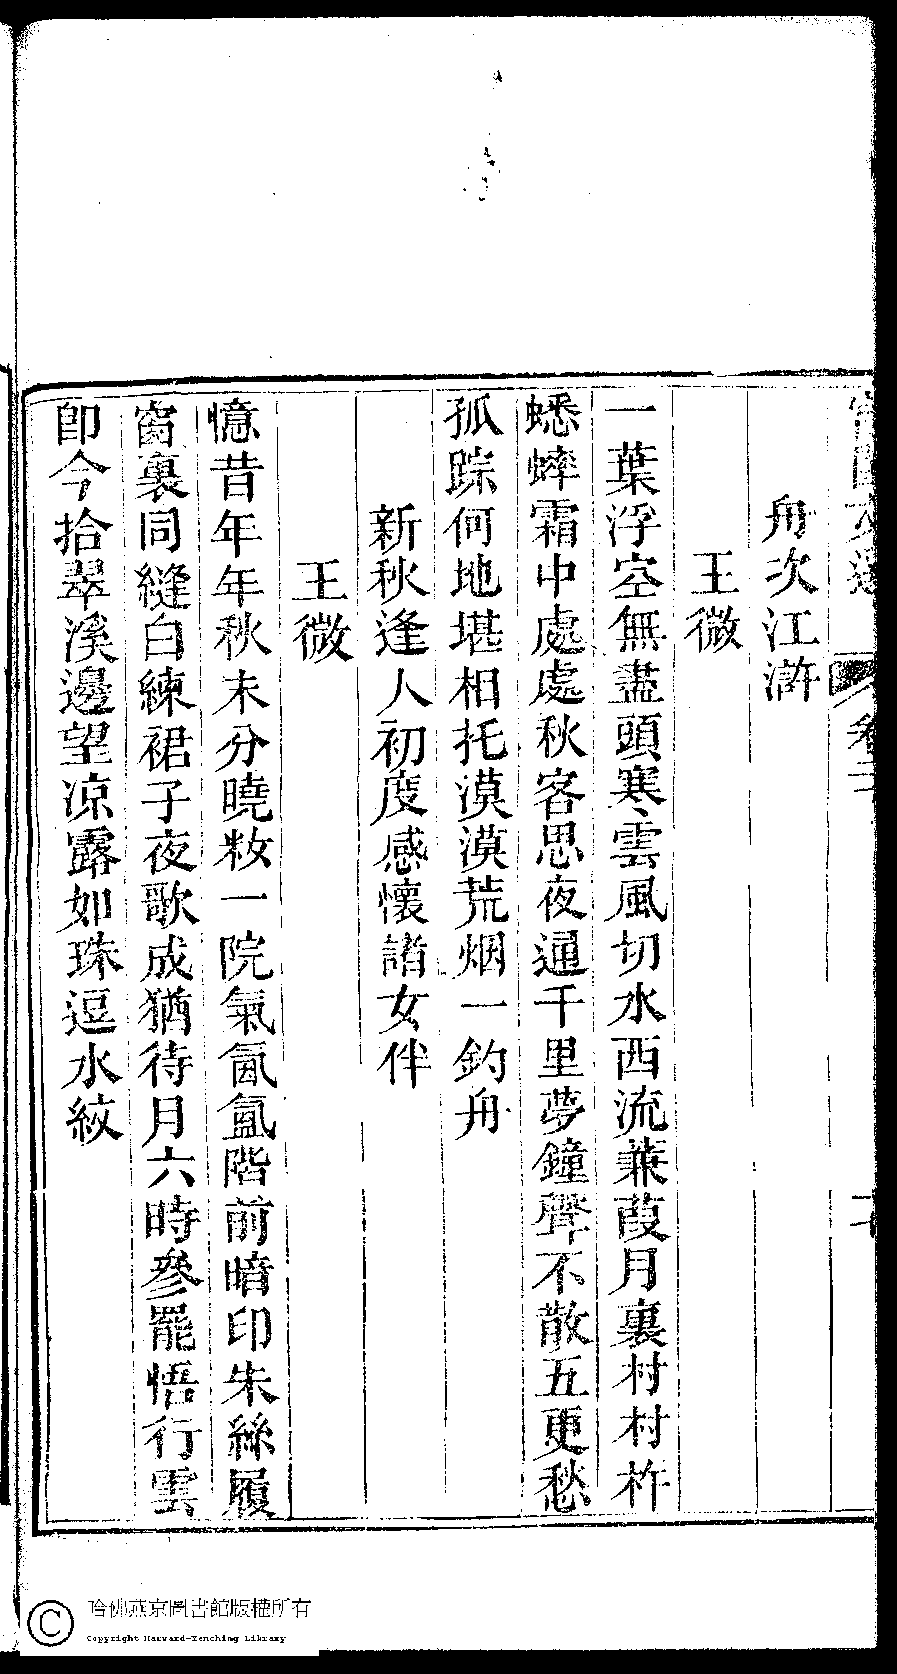 卷二
舟次江滸
王微
一葉浮空無盡頭寒雲風切水西流蒹葭月裏村村杵
蟋蟀霜中處處秋客思夜通千里夢鐘聲不散五更愁
孤踪何地堪相托漠漠荒烟一釣舟
新秋逢人初度感懷諸女伴
王微
憶昔年年秋未分曉粧一院氣氤氳階前暗印朱絲履
窗裏同縫白練裙子夜歌成猶待月六時參罷悟行雲
卽今拾翠溪邊望凉露如珠逗水紋
哈佛燕京圖書館版權所有
Copyright Harvard-Yenching Library